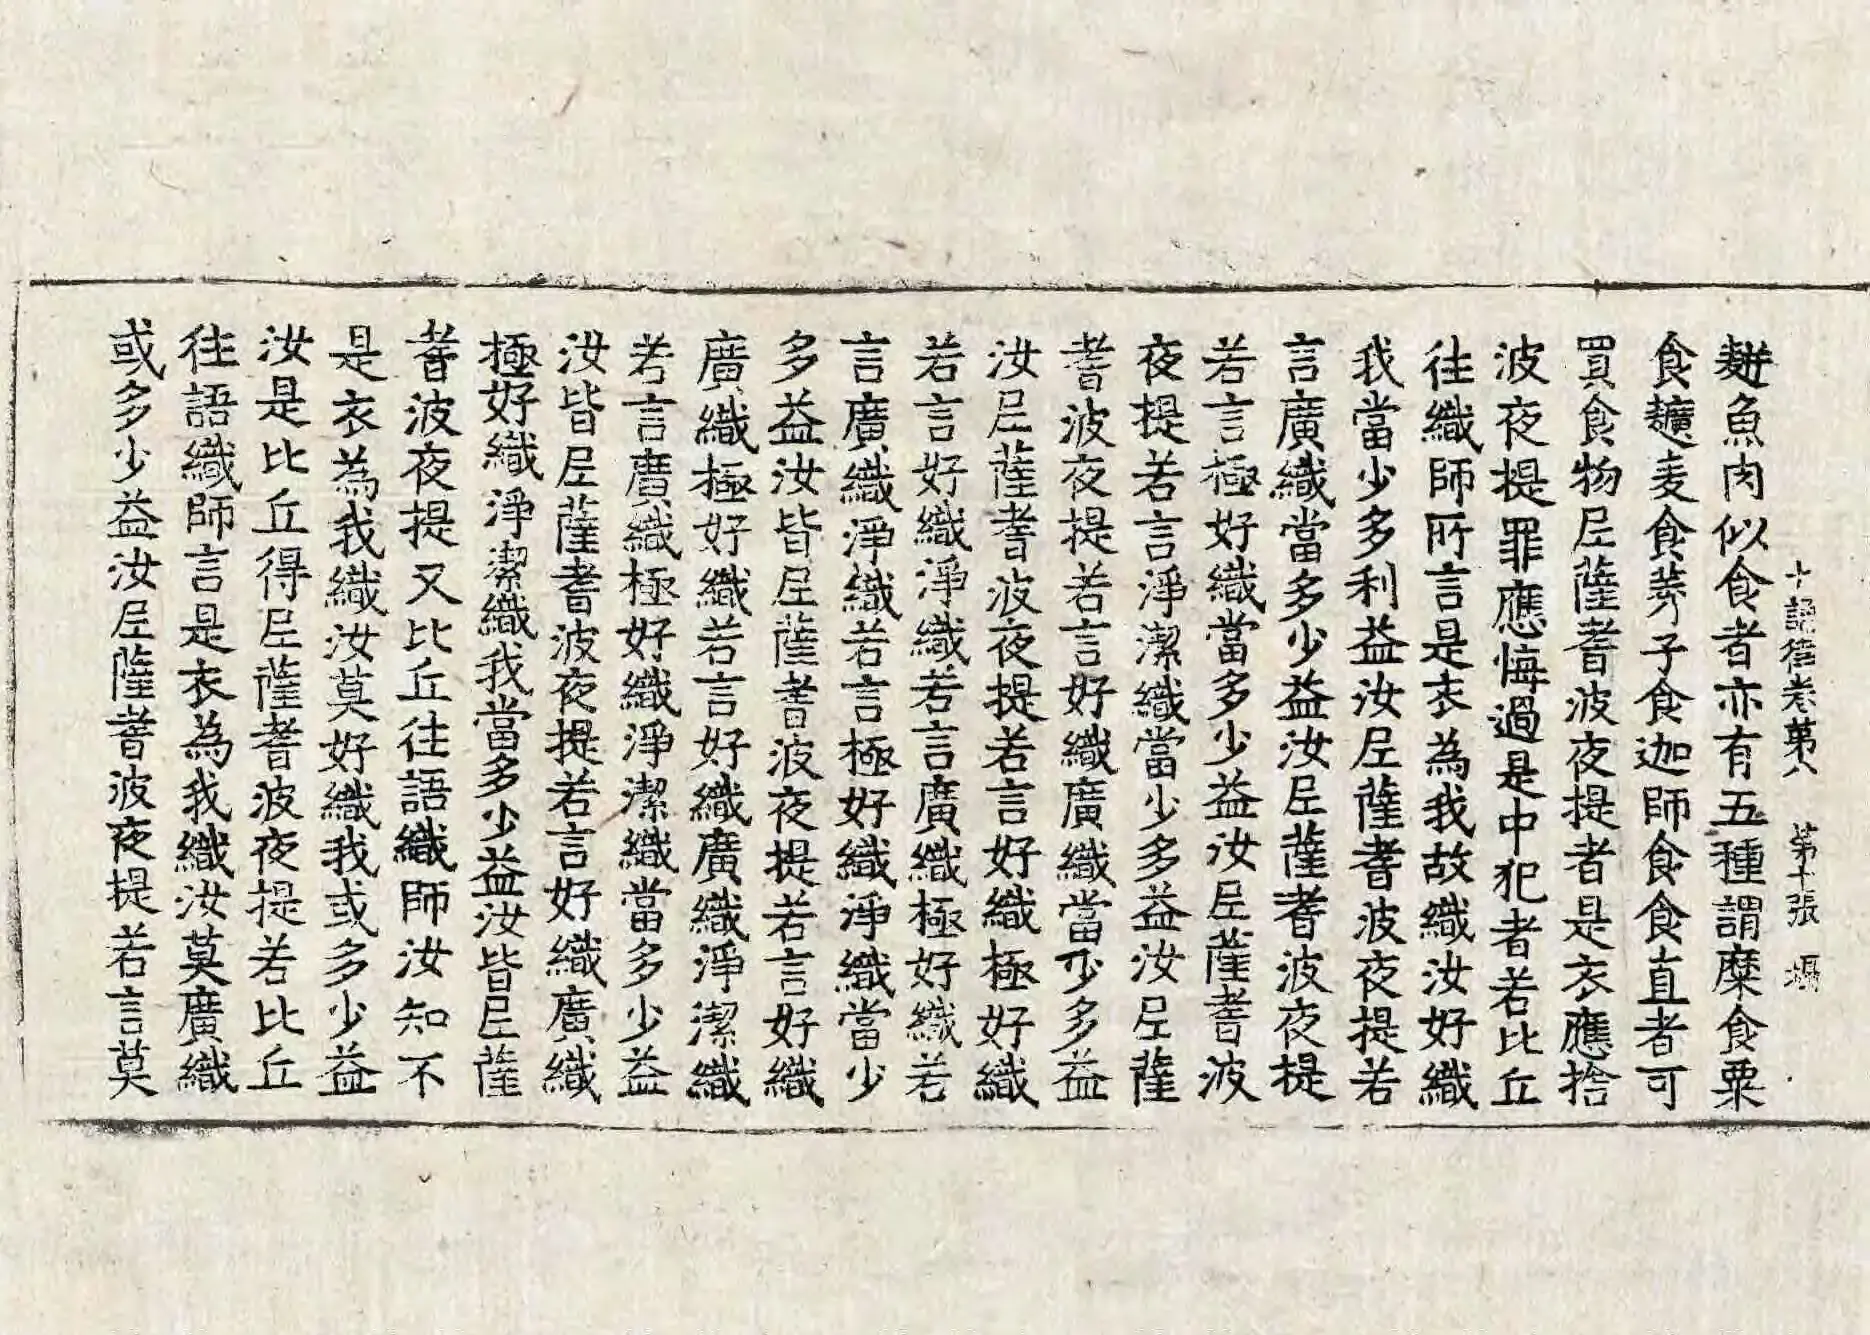 十誦律卷第八 第十張 堨
麨魚肉似食者亦有五種謂糜食粟
食䵃麦食莠子食迦師食食直者可
買食物𡰱薩耆波夜提者是衣應捨
波夜提罪應悔過是中犯者若比丘
往織師所言是衣為我故織汝好織
我當少多利益汝𡰱薩耆波夜提若
言廣織當多少益汝𡰱薩耆波夜提
若言極好織當多少益汝𡰱薩耆波
夜提若言淨潔織當少多益汝𡰱薩
耆波夜提若言好織廣織當少多益
汝𡰱薩耆波夜提若言好織極好織
若言好織淨織若言廣織極好織若
言廣織淨織若言極好織淨織當少
多益汝皆𡰱薩耆波夜提若言好織
廣織極好織若言好織廣織淨潔織
若言廣織極好織淨潔織當多少益
汝皆𡰱薩耆波夜提若言好織廣織
極好織淨潔織我當多少益汝皆𡰱薩
耆波夜提又比丘往語織師汝知不
是衣為我織汝莫好織我或多少益
汝是比丘得𡰱薩耆波夜提若比丘
往語織師言是衣為我織汝莫廣織
或多少益汝𡰱薩耆波夜提若言莫